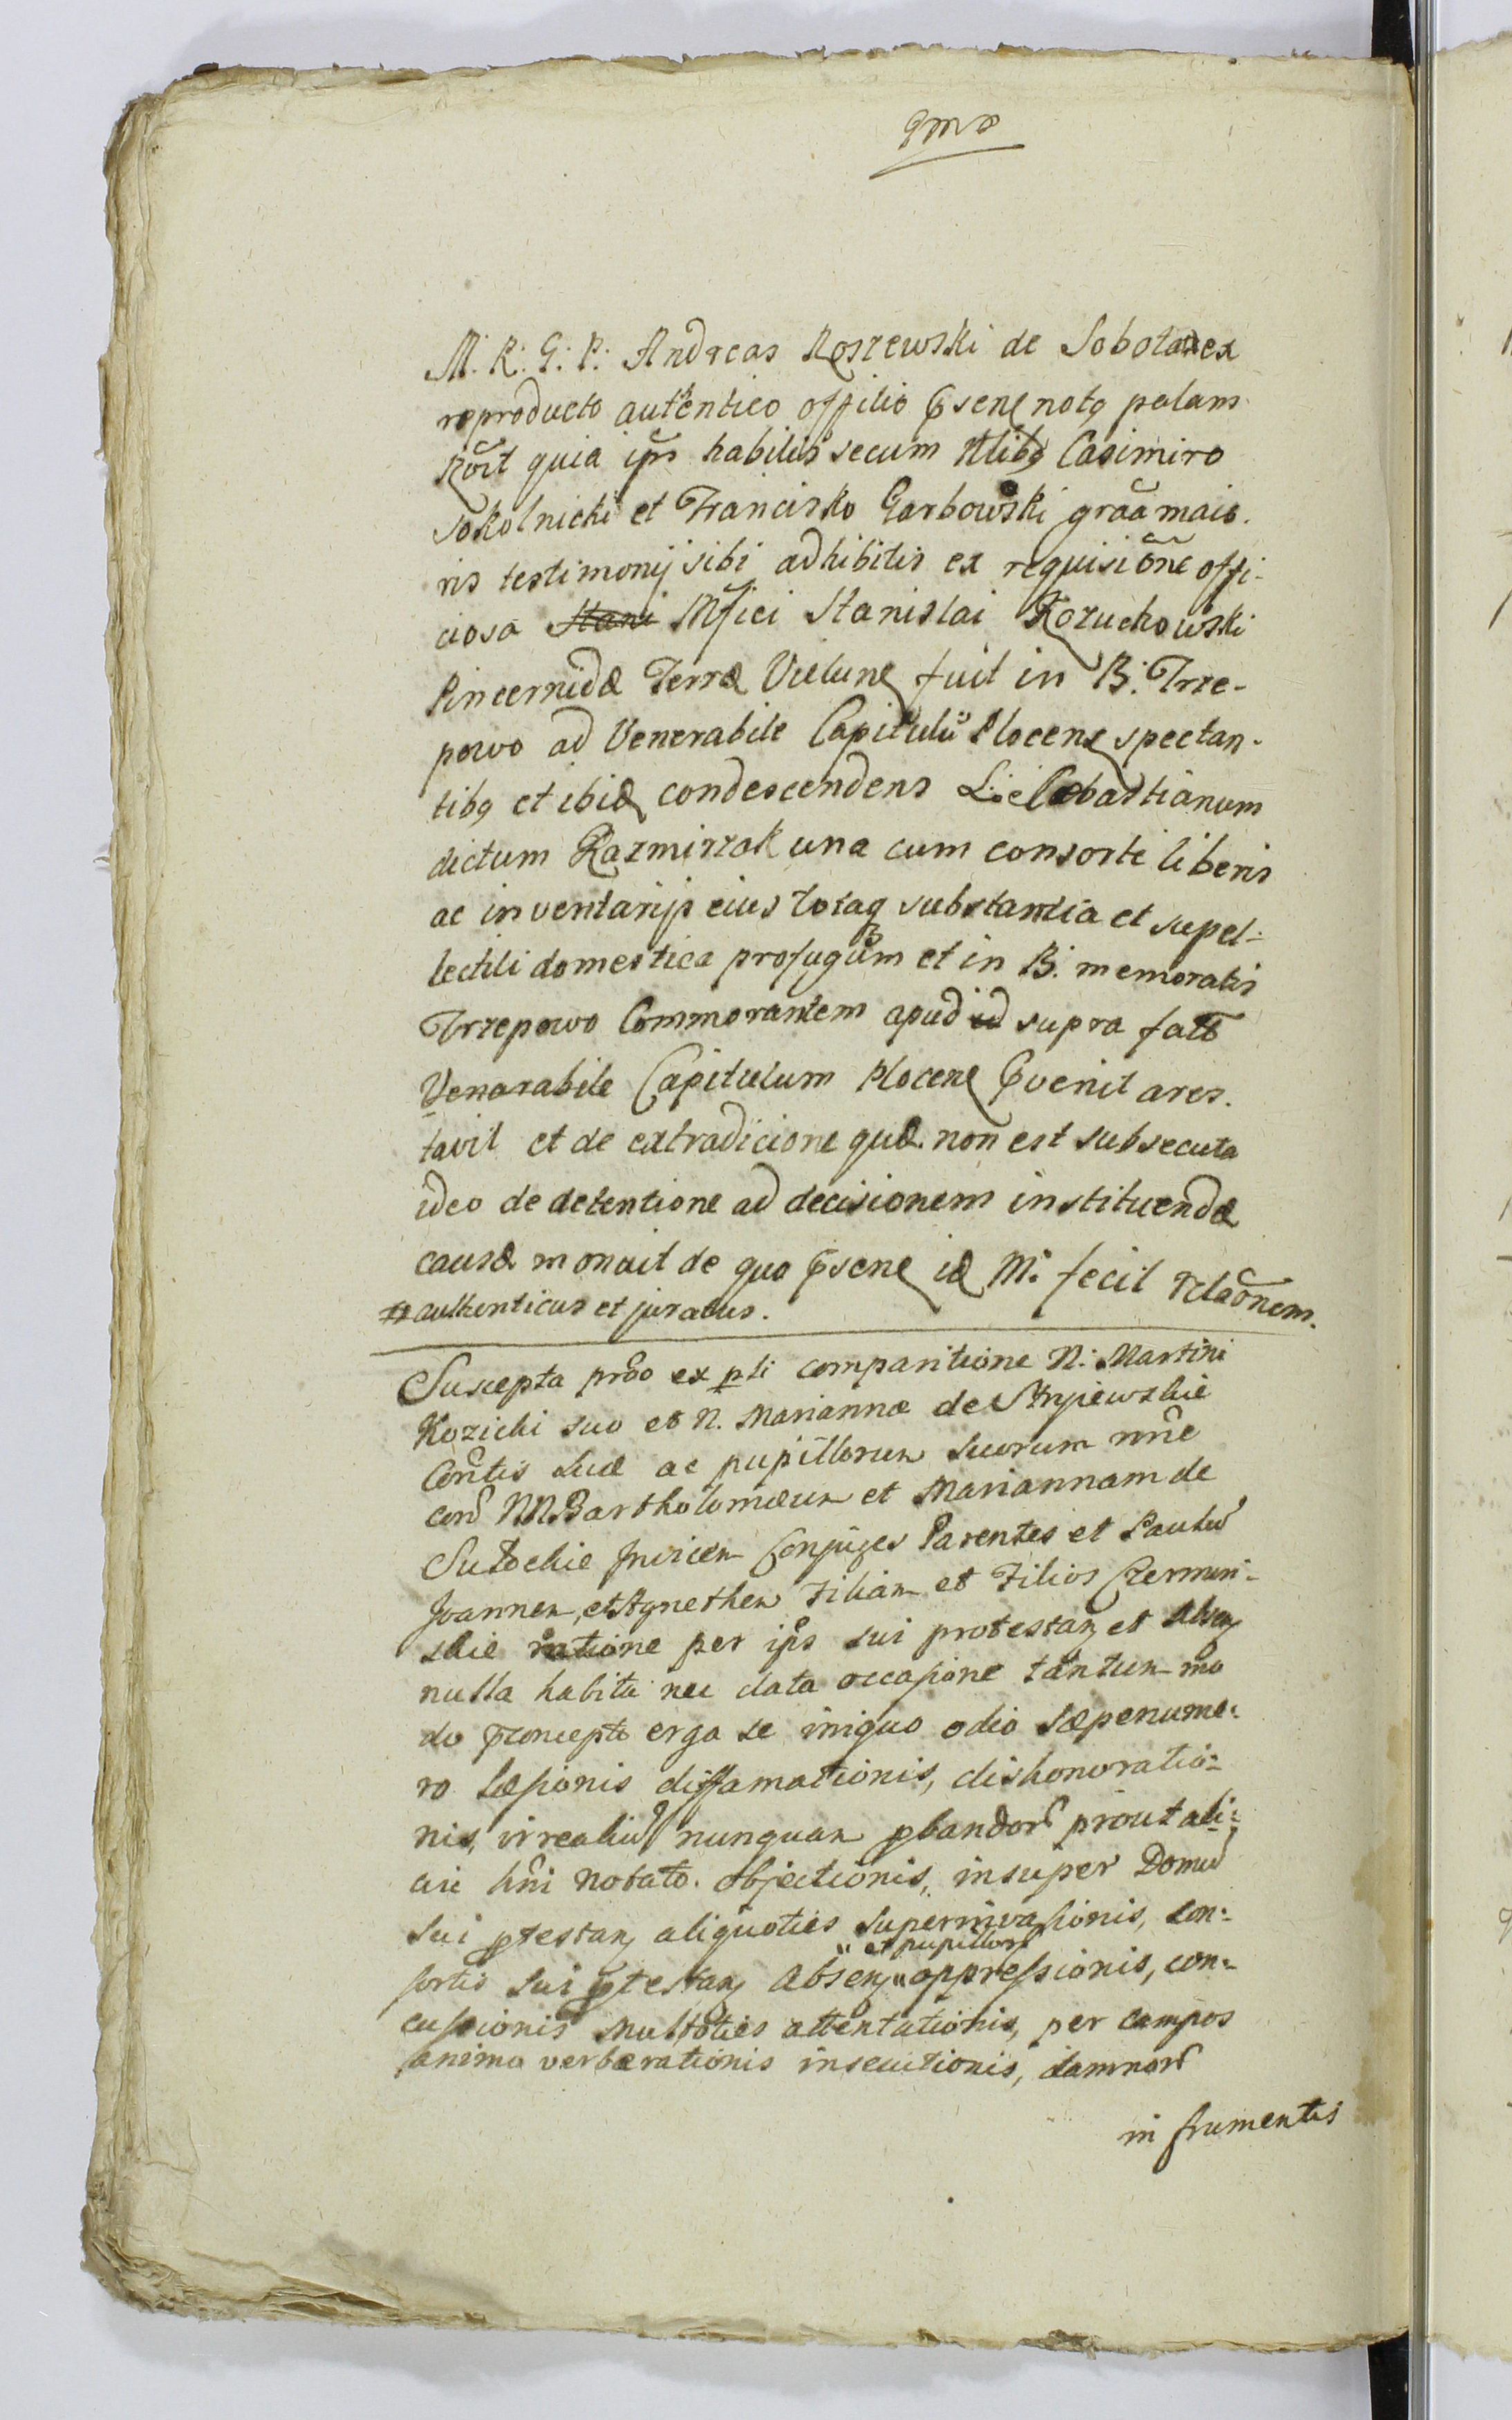 M: R: G: P: Andreas Roszewski de Sobota ex
reproducto autentico offitio Psens notq palam
Rōit quia ips̃ habitis secum Nlibq Casimiro
Sokolnicki et Francisko Garbowski grãa maio-
ris testimonij sibi adhibitis ex requisiõne offi-
ciosa Mfici Stanislai Kozuchowski
Pincernidæ Terræ Vielune fuit in B: Trze-
powo ad Venerabile Capitulū Plocens spectan-
tibq et ibid condescendens L: Cebastianum
dictum Kazmirzak una cum consorte liberis
ac inventarijs eius totaq substantia et supel-
lectili domestica profugum et in B: memoratis
Trzepowo Commorantem apud id supra fatt
Venarabile Capitulum Plocens Pvenit ares-
tavit et de extradicione quæ non est subsecuta
ideo de detentione ad decisionem instituendæ
causæ monuit de quo Psens id M: fecit rlãonem
authenticus et juratus.
Suscepta prõo ex pti comparitione N: Martini
Kozicki suo et N. Mariannæ de Stryiewskie
Contis suæ ac pupillorum suorum nñe
cora NN Bartholomæum et Mariannam de
Sutockie Invicem Conjuges Parentes et Paulū
Joannem, et Agnethem Filiam et Filios Czermin-
skie ratione per ips̃ sui protestan et Absen
nulla habita nec data occasione tantum mo
do Pconcepto erga se iniquo odio sæpenume-
ro Læsionis diffamationis, dishonoratio-
nis, irrealiū nunquam pbandorū prout ali-
cui hñi notato. objectionis, insuper Domū
sui ptestan aliquoties superinvasionis, Con-
sortis sui ptestan Absen " et pupillorū " oppressionis, con-
cussionis multoties attentationis, per campos
animo verberationis insecutionis, damnorū
in frumentis